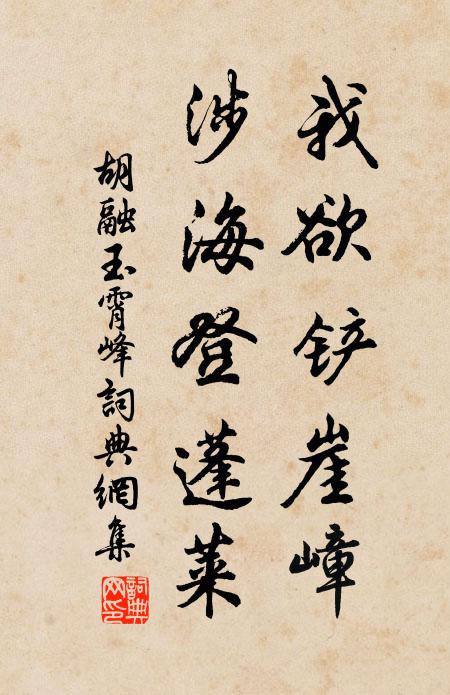 我欲铲崖嶂
涉海登蓬莱
胡融玉霄峰詞典網集
詞典网印